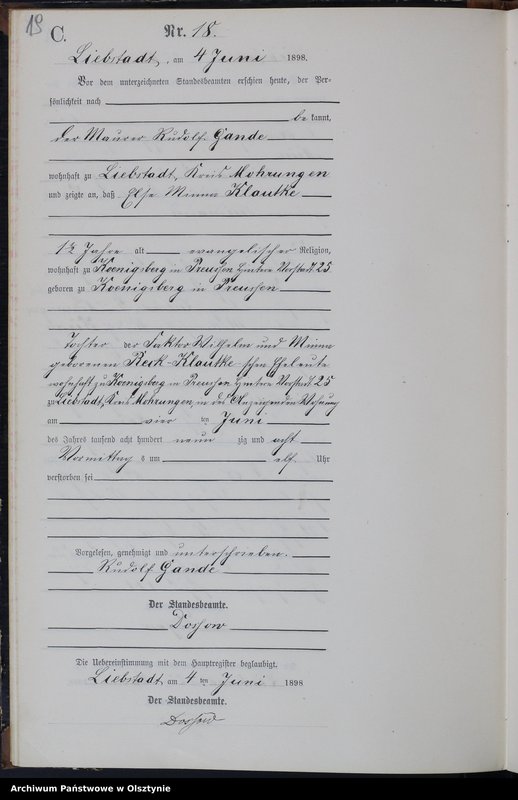 19
C.
Nr. 18.
Liebstadt, am 4 Juni 1898.
Vor dem unterzeichneten Standesbeamten erschien heute, der Per-
sönlichkeit nach
be kannt,
der Maurer Rudolf Gande
wohnhaft zu Liebstadt, Kreis Mohrungen
und zeigte an, daß Else Minna Klautke
12 Jahre alt evangelischer Religion,
wohnhaft zu Koenigsberg in Preussen hintere Vorstadt 25
geboren zu Koenigsberg in Preussen
Tochter der Faktor Wilhelm und Minna
geborenen Reck-Klautke'schen Eheleute
wohnhaft zu Koenigsberg in Preussen hintere Vorstadt 25
zu Liebstadt, Kreis Mohrungen, in des Anzeigenden Wohnung
am vier ten Juni
des Jahres tausend acht hundert neun zig und acht
Vormittag s um elf Uhr
verstorben sei
Vorgelesen, genehmigt und unterschrieben.
Rudolf Gande
Der Standesbeamte.
Dossow
Die Uebereinstimmung mit dem Hauptregister beglaubigt.
Liebstadt, am 4 ten Juni 1898
Der Standesbeamte.
Dossow
Archiwum Państwowe w Olsztynie